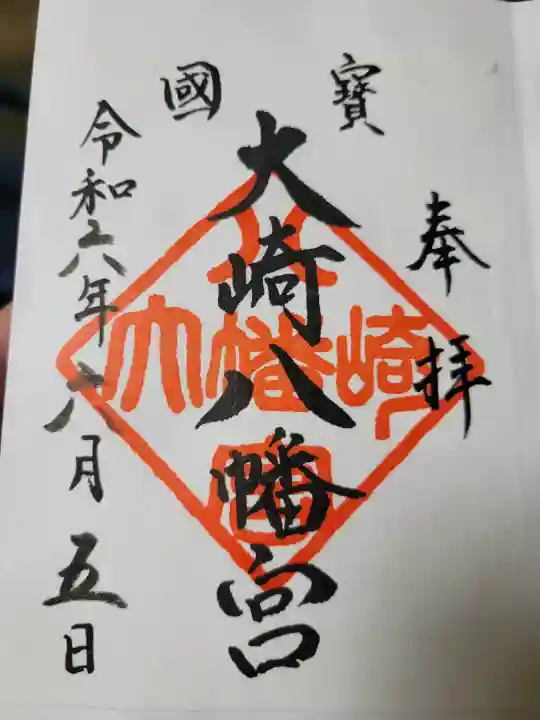 國寳
奉拝
大崎八幡宮
令和六年六月五日
大崎八幡宮